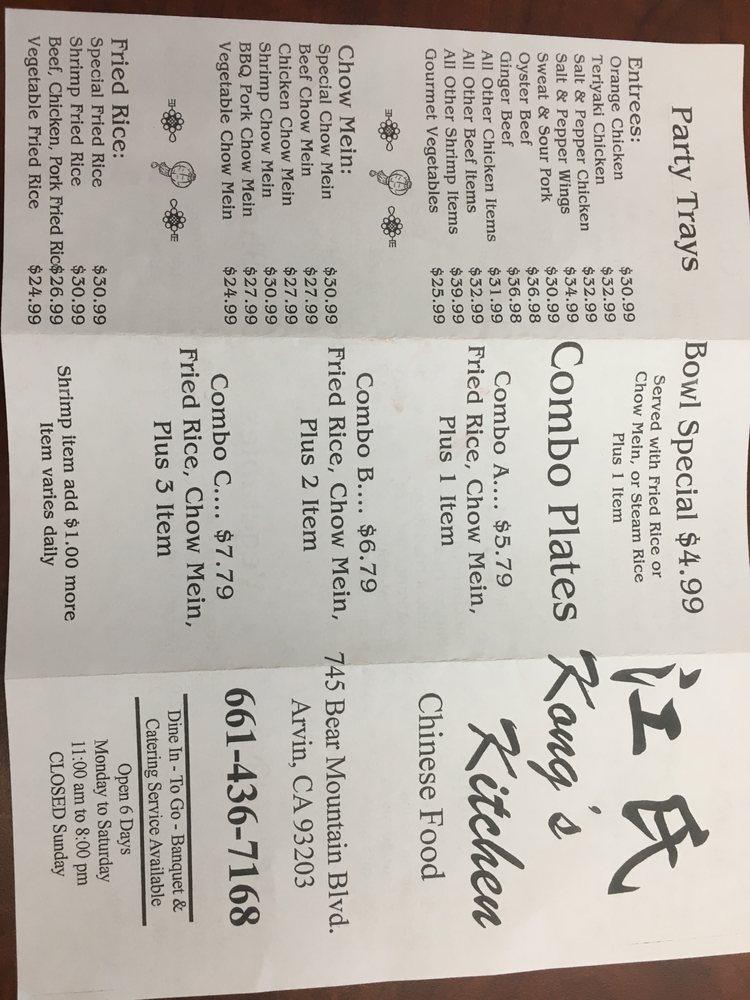 Party Trays
Entrees:
Orange Chicken $30.99
Teriyaki Chicken $32.99
Salt & Pepper Chicken $32.99
Salt & Pepper Wings $34.99
Sweat & Sour Pork $30.99
Oyster Beef $36.98
Ginger Beef $36.98
All Other Chicken Items $31.99
All Other Beef Items $32.99
All Other Shrimp Items $39.99
Gourmet Vegetables $25.99
Chow Mein:
Special Chow Mein $30.99
Beef Chow Mein $27.99
Chicken Chow Mein $27.99
Shrimp Chow Mein $30.99
BBQ Pork Chow Mein $27.99
Vegetable Chow Mein $24.99
Fried Rice:
Special Fried Rice $30.99
Shrimp Fried Rice $30.99
Beef, Chicken, Pork Fried Ric$26.99
Vegetable Fried Rice $24.99
Bowl Special $4.99
Served with Fried Rice or
Chow Mein, or Steam Rice
Plus 1 Item
Combo Plates
Combo A.... $5.79
Fried Rice, Chow Mein,
Plus 1 Item
Combo B.... $6.79
Fried Rice, Chow Mein,
Plus 2 Item
Combo C.... $7.79
Fried Rice, Chow Mein,
Plus 3 Item
Shrimp item add $1.00 more
Item varies daily
江氏
Kong's
Kitchen
Chinese Food
745 Bear Mountain Blvd.
Arvin, CA 93203
661-436-7168
Dine In - To Go - Banquet &
Catering Service Available
Open 6 Days
Monday to Saturday
11:00 am to 8:00 pm
CLOSED Sunday